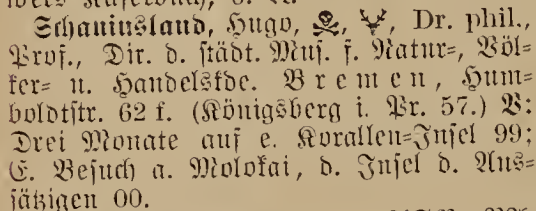 Schauinsland, Hugo, ☠, Dr. phil.,
Prof., Dir. d. städt. Mus. f. Natur-, Völ-
ker- u. Handelskde. Bremen, Hum-
boldtstr. 62 f. (Königsberg i. Pr. 57.) V:
Drei Monate auf e. Korallen-Insel 99;
E. Besuch a. Molokai, d. Insel d. Aus-
sätzigen 00.